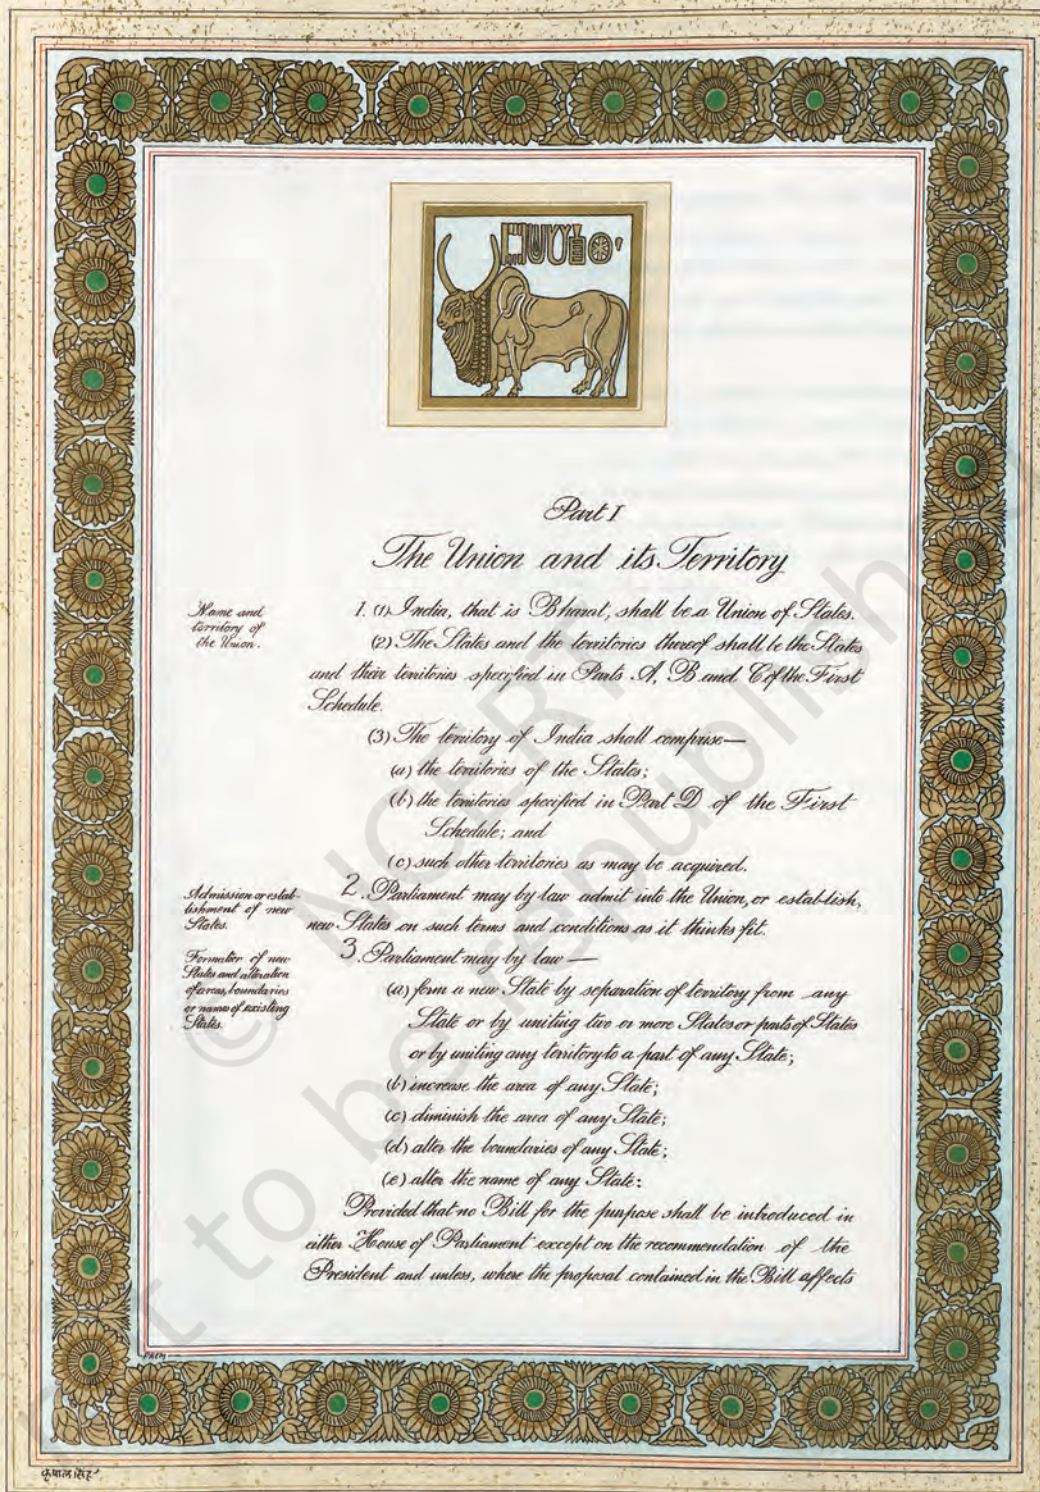 Part I
The Union and its Territory
Name and
territory of
the Union.
1. (1) India, that is Bharat, shall be a Union of States.
(2) The States and the territories thereof shall be the States
and their territories specified in Parts A, B and C of the First
Schedule.
(3) The territory of India shall comprise—
(a) the territories of the States;
(b) the territories specified in Part D of the First
Schedule; and
(c) such other territories as may be acquired.
Admission or estab-
lishment of new
States.
2. Parliament may by law admit into the Union, or establish,
new States on such terms and conditions as it thinks fit.
Formation of new
States and alteration
of areas, boundaries
or names of existing
States.
3. Parliament may by law—
(a) form a new State by separation of territory from any
State or by uniting two or more States or parts of States
or by uniting any territory to a part of any State;
(b) increase the area of any State;
(c) diminish the area of any State;
(d) alter the boundaries of any State;
(e) alter the name of any State:
Provided that no Bill for the purpose shall be introduced in
either House of Parliament except on the recommendation of the
President and unless, where the proposal contained in the Bill affects
PREM
कृपाल सिंह
© NCERT
t to be republish